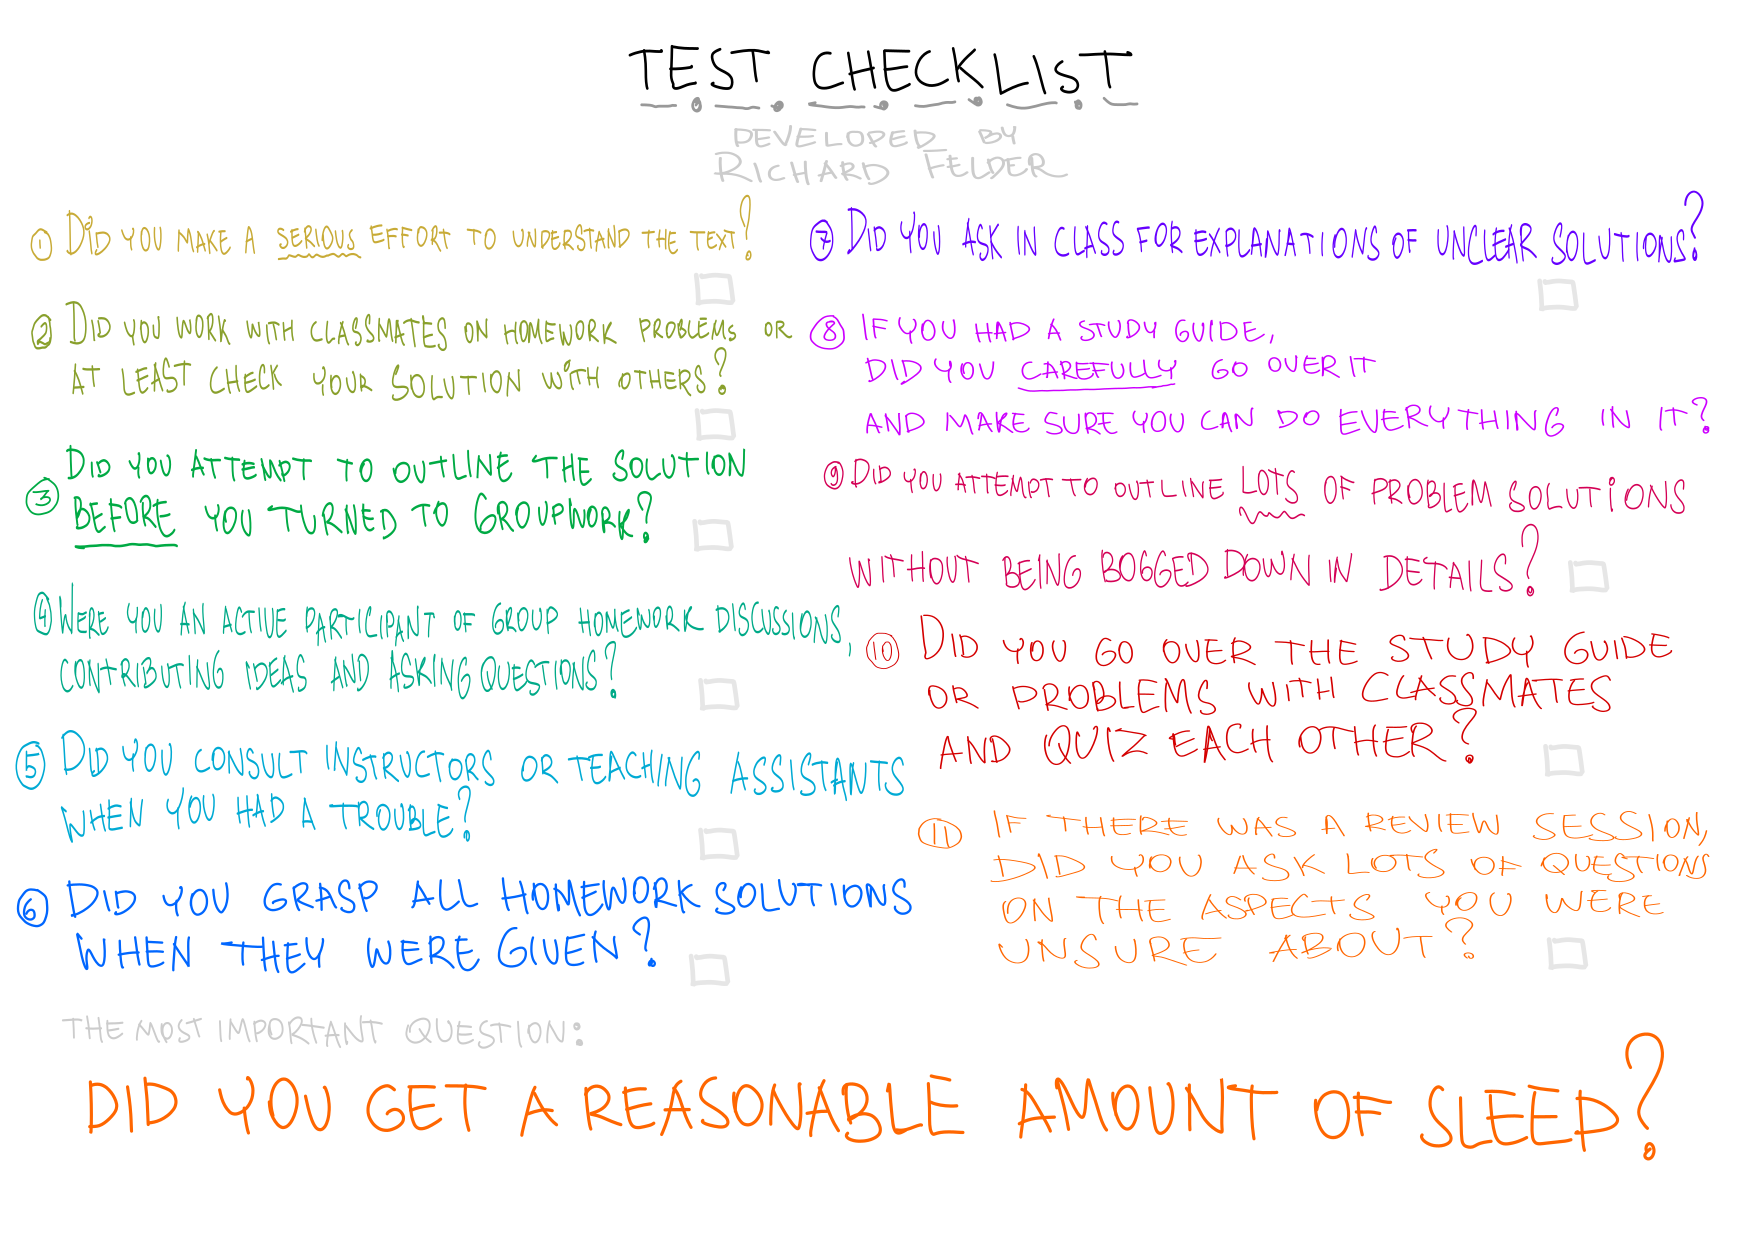 TEST CHECKLIST
DEVELOPED BY
RICHARD FELDER
1 DID YOU MAKE A SERIOUS EFFORT TO UNDERSTAND THE TEXT?
2 DID YOU WORK WITH CLASSMATES ON HOMEWORK PROBLEMS OR
AT LEAST CHECK YOUR SOLUTION WITH OTHERS?
3 DID YOU ATTEMPT TO OUTLINE THE SOLUTION
BEFORE YOU TURNED TO GROUPWORK?
4 WERE YOU AN ACTIVE PARTICIPANT OF GROUP HOMEWORK DISCUSSIONS,
CONTRIBUTING IDEAS AND ASKING QUESTIONS?
5 DID YOU CONSULT INSTRUCTORS OR TEACHING ASSISTANTS
WHEN YOU HAD A TROUBLE?
6 DID YOU GRASP ALL HOMEWORK SOLUTIONS
WHEN THEY WERE GIVEN?
7 DID YOU ASK IN CLASS FOR EXPLANATIONS OF UNCLEAR SOLUTIONS?
8 IF YOU HAD A STUDY GUIDE,
DID YOU CAREFULLY GO OVER IT
AND MAKE SURE YOU CAN DO EVERYTHING IN IT?
9 DID YOU ATTEMPT TO OUTLINE LOTS OF PROBLEM SOLUTIONS
WITHOUT BEING BOGGED DOWN IN DETAILS?
10 DID YOU GO OVER THE STUDY GUIDE
OR PROBLEMS WITH CLASSMATES
AND QUIZ EACH OTHER?
11 IF THERE WAS A REVIEW SESSION,
DID YOU ASK LOTS OF QUESTIONS
ON THE ASPECTS YOU WERE
UNSURE ABOUT?
THE MOST IMPORTANT QUESTION:
DID YOU GET A REASONABLE AMOUNT OF SLEEP?